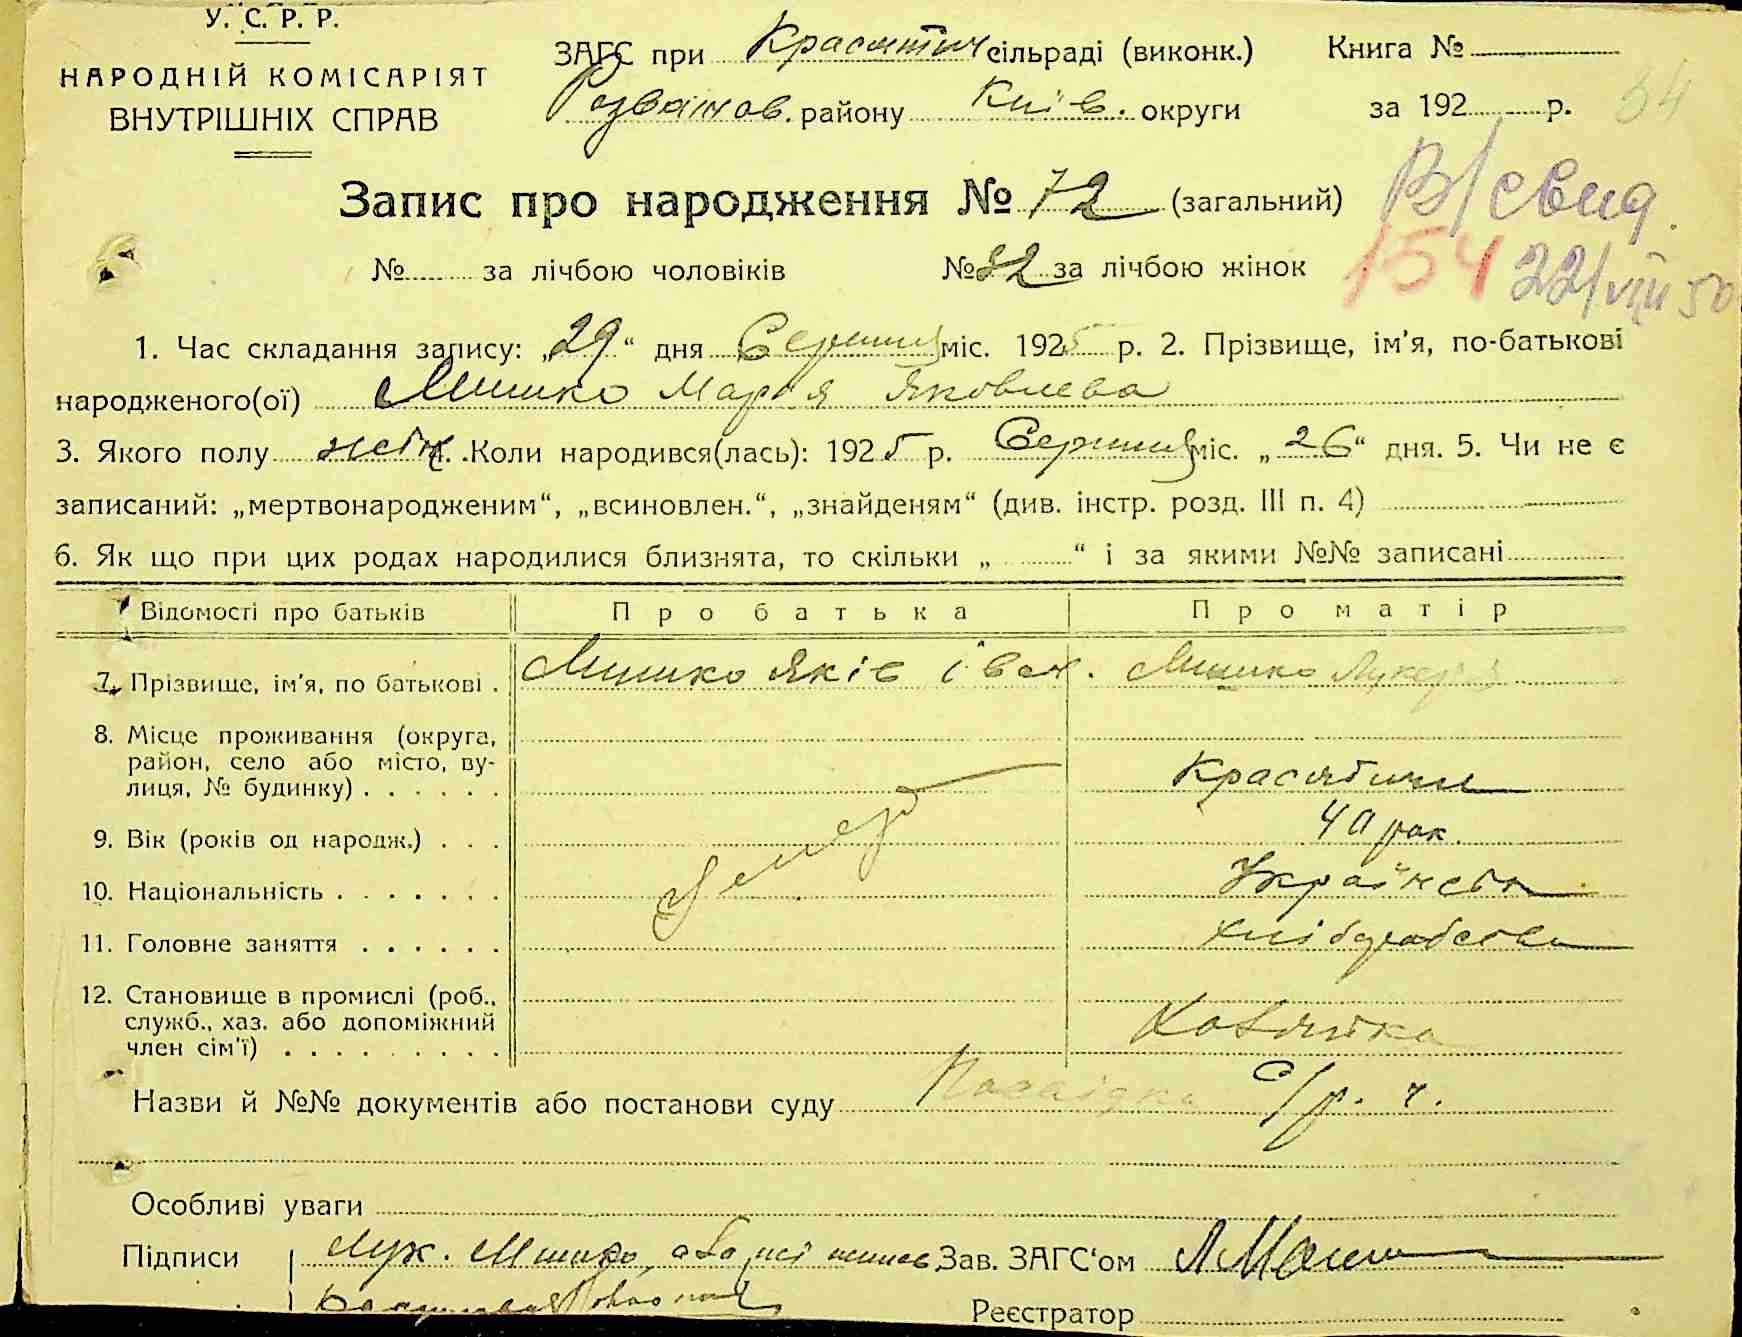 У. С. Р. Р.
НАРОДНІЙ КОМІСАРІЯТ
ВНУТРІШНІХ СПРАВ
ЗАГС при Красятич сільраді (виконк.) Книга №
Розважов. району Київ. округи за 192 р. 54
Запис про народження № 72 (загальний) В/свид.
№ за лічбою чоловіків № 32 за лічбою жінок 154 22/VIII 50
1. Час складання запису: „29“ дня Серпня міс. 1925 р. 2. Прізвище, ім'я, по-батькові
народженого(ої) Мишко Марія Яковлева
3. Якого полу жін. Коли народився(лась): 1925 р. Серпня міс. „26“ дня. 5. Чи не є
записаний: „мертвонародженим“, „всиновлен.“, „знайденям“ (див. інстр. розд. III п. 4)
6. Як що при цих родах народилися близнята, то скільки „ “ і за якими №№ записані
Відомості про батьків Про батька Про матір
7. Прізвище, ім'я, по батькові . Мишко Яків Іван. Мишко Лукер
8. Місце проживання (округа,
район, село або місто, ву-
лиця, № будинку) . . . . . . Красятичи
9. Вік (років од народж.) . . . 40 рок.
10. Національність . . . . . . . Українська
11. Головне заняття . . . . . . хліборобство
12. Становище в промислі (роб.,
служб., хаз. або допоміжний
член сім'ї) . . . . . . . . .
Хазяйка
Умер
Назви й №№ документів або постанови суду Посвідка с/р. ч.
Особливі уваги
Підписи Лук. Мишко, а за неї Зав. ЗАГС'ом
Реєстратор